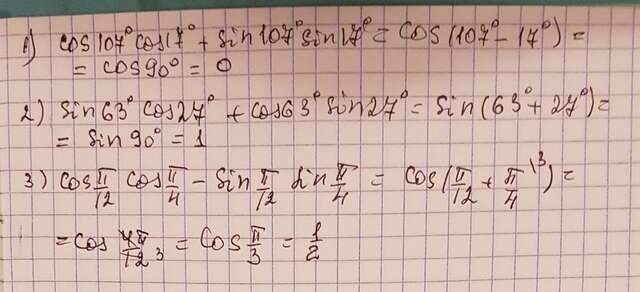 1) cos107°cos17° + sin107°sin17° = cos(107° - 17°) =
= cos90° = 0
2) sin63°cos27° + cos63°sin27° = sin(63° + 27°) =
= sin90° = 1
3) cos π/12 cos π/4 - sin π/12 sin π/4 = cos(π/12 + π/4 \3) =
= cos 4π/12 3 = cos π/3 = 1/2